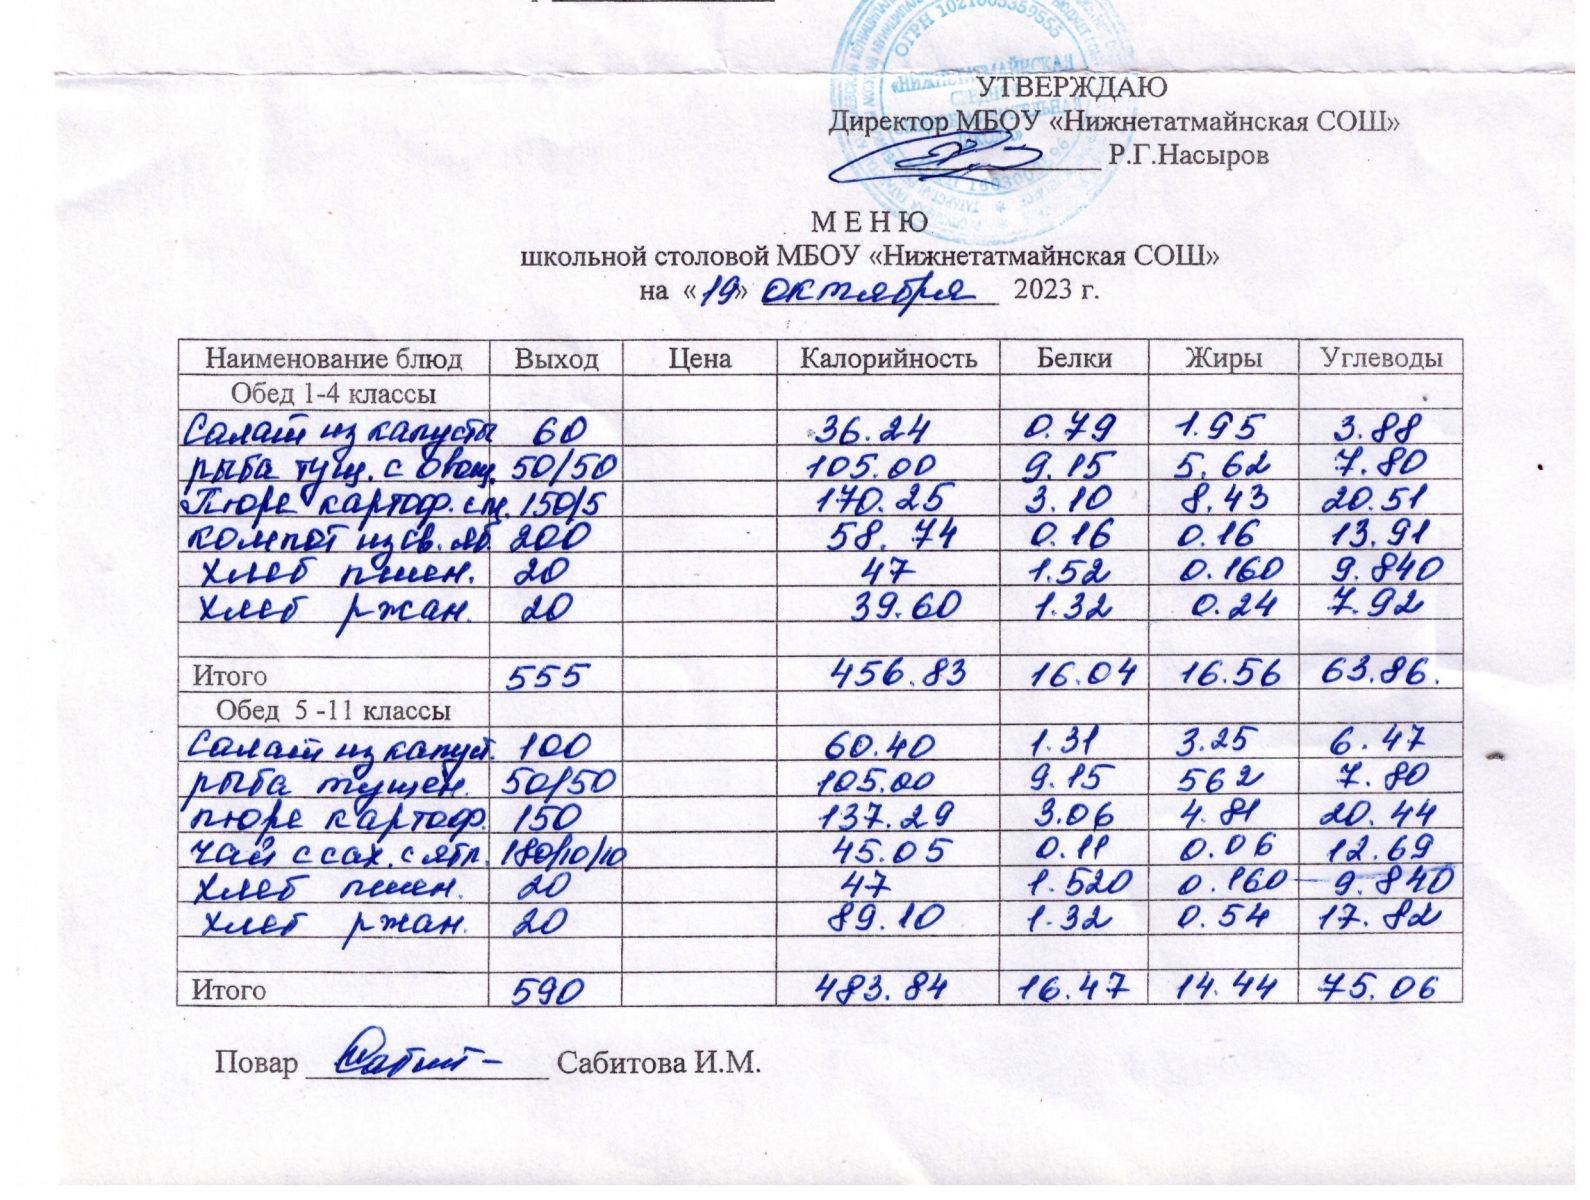 ОГРН 1021605359555
«НИЖНЕТАТМАЙНСКАЯ
УТВЕРЖДАЮ
Директор МБОУ «Нижнетатмайнская СОШ»
Р.Г.Насыров
М Е Н Ю
школьной столовой МБОУ «Нижнетатмайнская СОШ»
на «19» октября 2023 г.
Наименование блюд Выход Цена Калорийность Белки Жиры Углеводы
Обед 1-4 классы
Салат из капусты 60 36.24 0.79 1.95 3.88
рыба тущ. с овощ. 50/50 105.00 9.15 5.62 7.80
Пюре картоф. с м. 150/5 170.25 3.10 8.43 20.51
компот из св. яб. 200 58.74 0.16 0.16 13.91
хлеб пшен. 20 47 1.52 0.160 9.840
хлеб ржан. 20 39.60 1.32 0.24 7.92
Итого 555 456.83 16.04 16.56 63.86.
Обед 5 -11 классы
Салат из капуст. 100 60.40 1.31 3.25 6.47
рыба тушен. 50/50 105.00 9.15 562 7.80
пюре картоф. 150 137.29 3.06 4.81 20.44
чай с сах. с ябл. 180/10/10 45.05 0.11 0.06 12.69
хлеб пшен. 20 47 1.520 0.160 9.840
хлеб ржан. 20 89.10 1.32 0.54 17.82
Итого 590 483.84 16.47 14.44 75.06
Повар Сабит- Сабитова И.М.